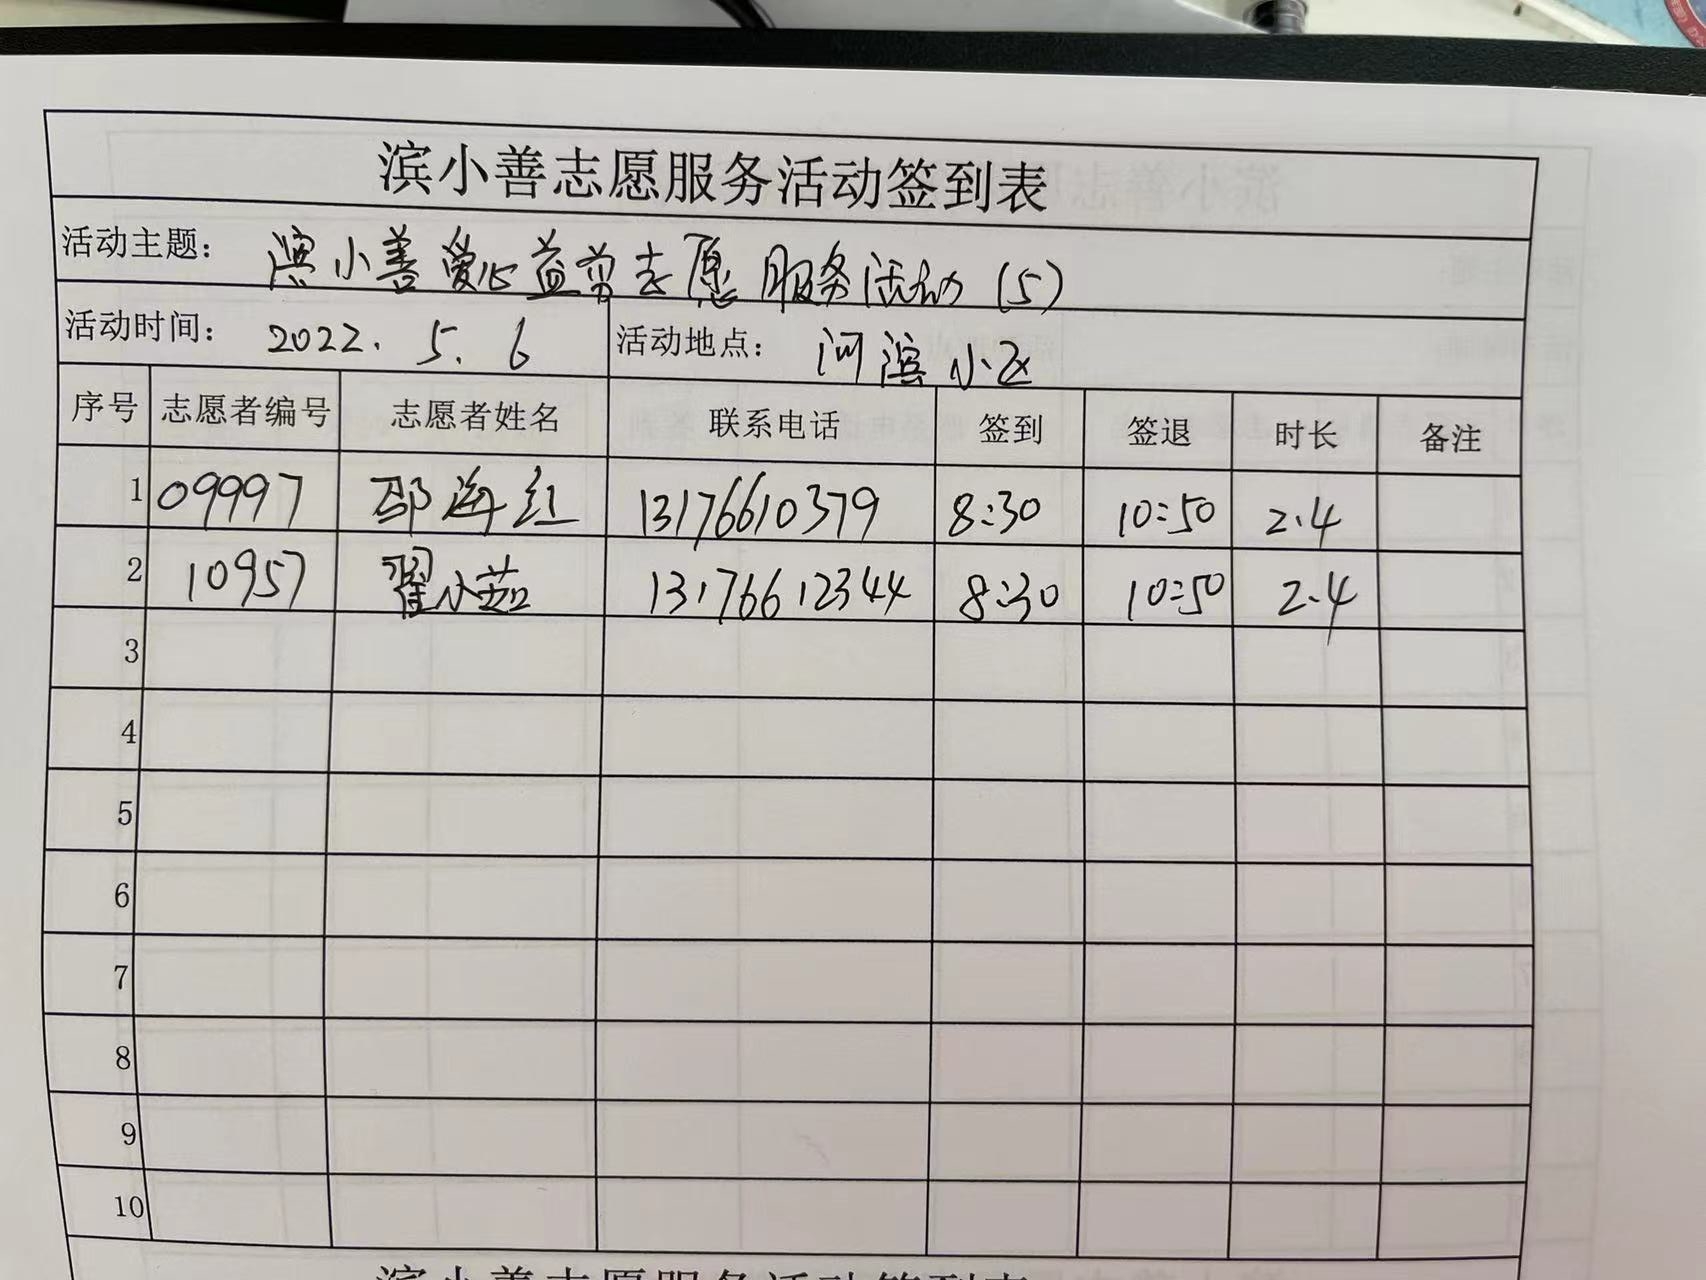 滨小善志愿服务活动签到表
活动主题： 滨小善爱心益剪志愿服务活动（5）
活动时间： 2022. 5. 6 活动地点： 河滨小区
序号 志愿者编号 志愿者姓名 联系电话 签到 签退 时长 备注
1 09997 邵海红 13176610379 8:30 10:50 2.4
2 10957 翟小茹 13176612344 8:30 10:50 2.4
3
4
5
6
7
8
9
10
滨小善志愿服务活动签到表